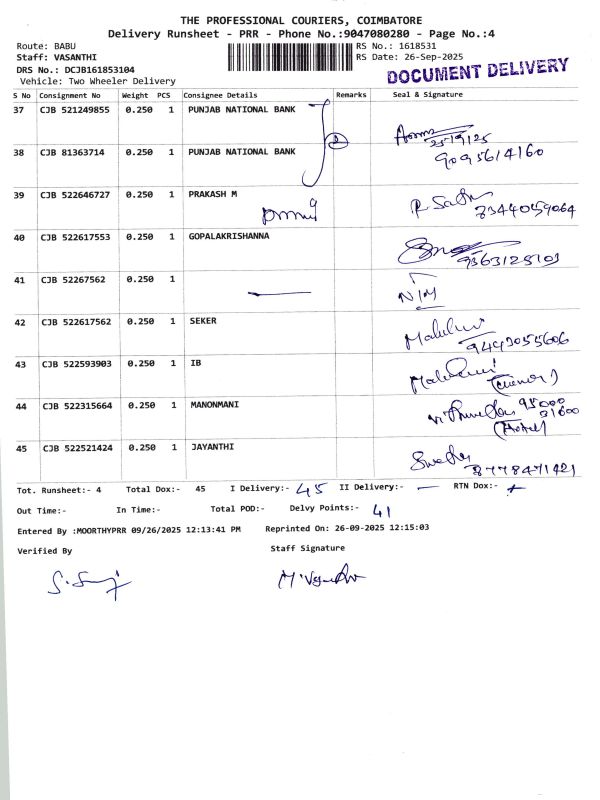 THE PROFESSIONAL COURIERS, COIMBATORE
Delivery Runsheet - PRR - Phone No.:9047080280 - Page No.:4
Route: BABU RS No.: 1618531
Staff: VASANTHI RS Date: 26-Sep-2025
DRS No.: DCJB161853104
Vehicle: Two Wheeler Delivery
DOCUMENT DELIVERY
S No Consignment No Weight PCS Consignee Details Remarks Seal & Signature
37 CJB 521249855 0.250 1 PUNJAB NATIONAL BANK
25/9/25
38 CJB 81363714 0.250 1 PUNJAB NATIONAL BANK 2
9095614160
39 CJB 522646727 0.250 1 PRAKASH M
40 CJB 522617553 0.250 1 GOPALAKRISHNA
9363125103
41 CJB 52267562 0.250 1
42 CJB 522617562 0.250 1 SEKER
9442055606
43 CJB 522593903 0.250 1 IB
44 CJB 522315664 0.250 1 MANONMANI 95000
81600
(Hotel)
45 CJB 522521424 0.250 1 JAYANTHI
8778471421
Tot. Runsheet:- 4 Total Dox:- 45 I Delivery:- 45 II Delivery:- — RTN Dox:-
Out Time:- In Time:- Total POD:- Delvy Points:- 41
Entered By :MOORTHYPRR 09/26/2025 12:13:41 PM Reprinted On: 26-09-2025 12:15:03
Verified By Staff Signature